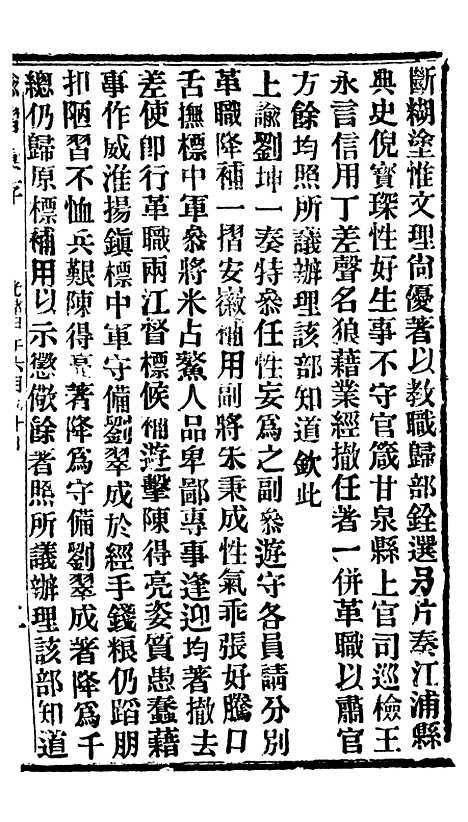 斷糊塗惟文理尙優著以教職歸部銓選另片奏江浦縣
典史倪寳琛性好生事不守官箴甘泉縣上官司巡檢王
永言信用丁差聲名狼藉業經撤任著一併革職以肅官
方餘均照所議辦理該部知道欽此
上諭劉坤一奏特叅任性妄爲之副叅遊守各員請分別
革職降補一摺安徽補用副將朱秉成性氣乖張好騰口
舌撫標中軍叅將米占鰲人品卑鄙專事逢迎均著撤去
差使卽行革職兩江督標候補遊擊陳得亮姿質愚蠢藉
事作威淮揚鎭標中軍守備劉翠成於經手錢粮仍蹈朋
扣陋習不恤兵艱陳得亮著降爲守備劉翠成著降爲千
總仍歸原標補用以示懲儆餘著照所議辦理該部知道